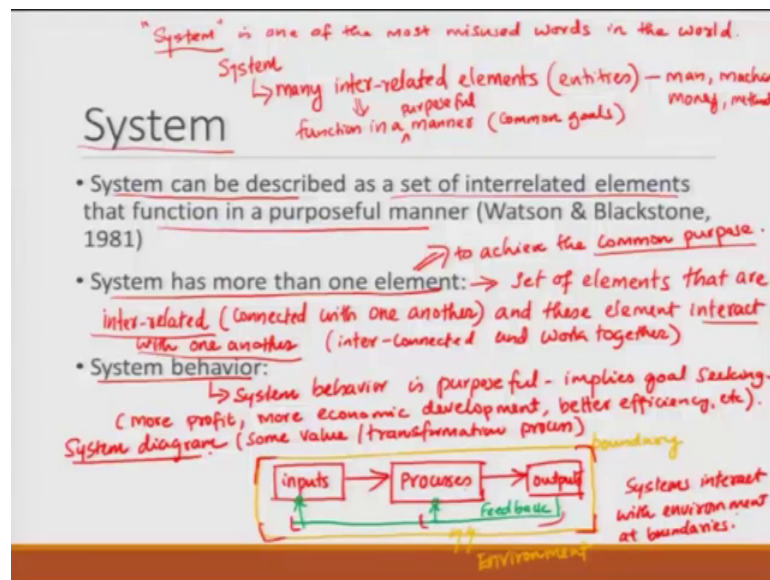 "System" is one of the most misused words in the world.
System
↳ many inter-related elements (entities) – man, machine
money, method
function in a purposeful manner (common goals)
System
• System can be described as a set of interrelated elements
that function in a purposeful manner (Watson & Blackstone,
1981)
to achieve the common purpose.
• System has more than one element: → set of elements that are
inter-related (connected with one another) and these element interact
with one another (inter-connected and work together)
• System behavior:
↳ System behavior is purposeful - implies goal seeking.
(more profit, more economic development, better efficiency, etc).
System diagram (some value / transformation process)
boundary
inputs → Processes → outputs
Feedback
Systems interact
with environment
at boundaries.
Environment